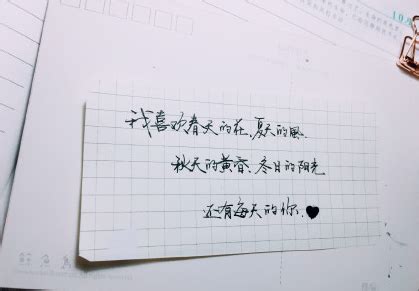 我喜欢春天的花、夏天的風、
秋天的黄昏、冬日的阳光
还有每天的你.♥